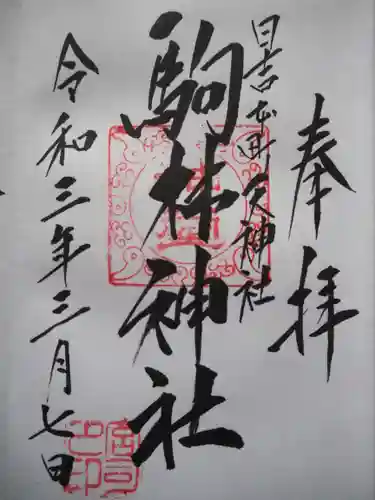 奉拝
日吉本町天神社
駒林神社
令和三年三月七日
宮司之印